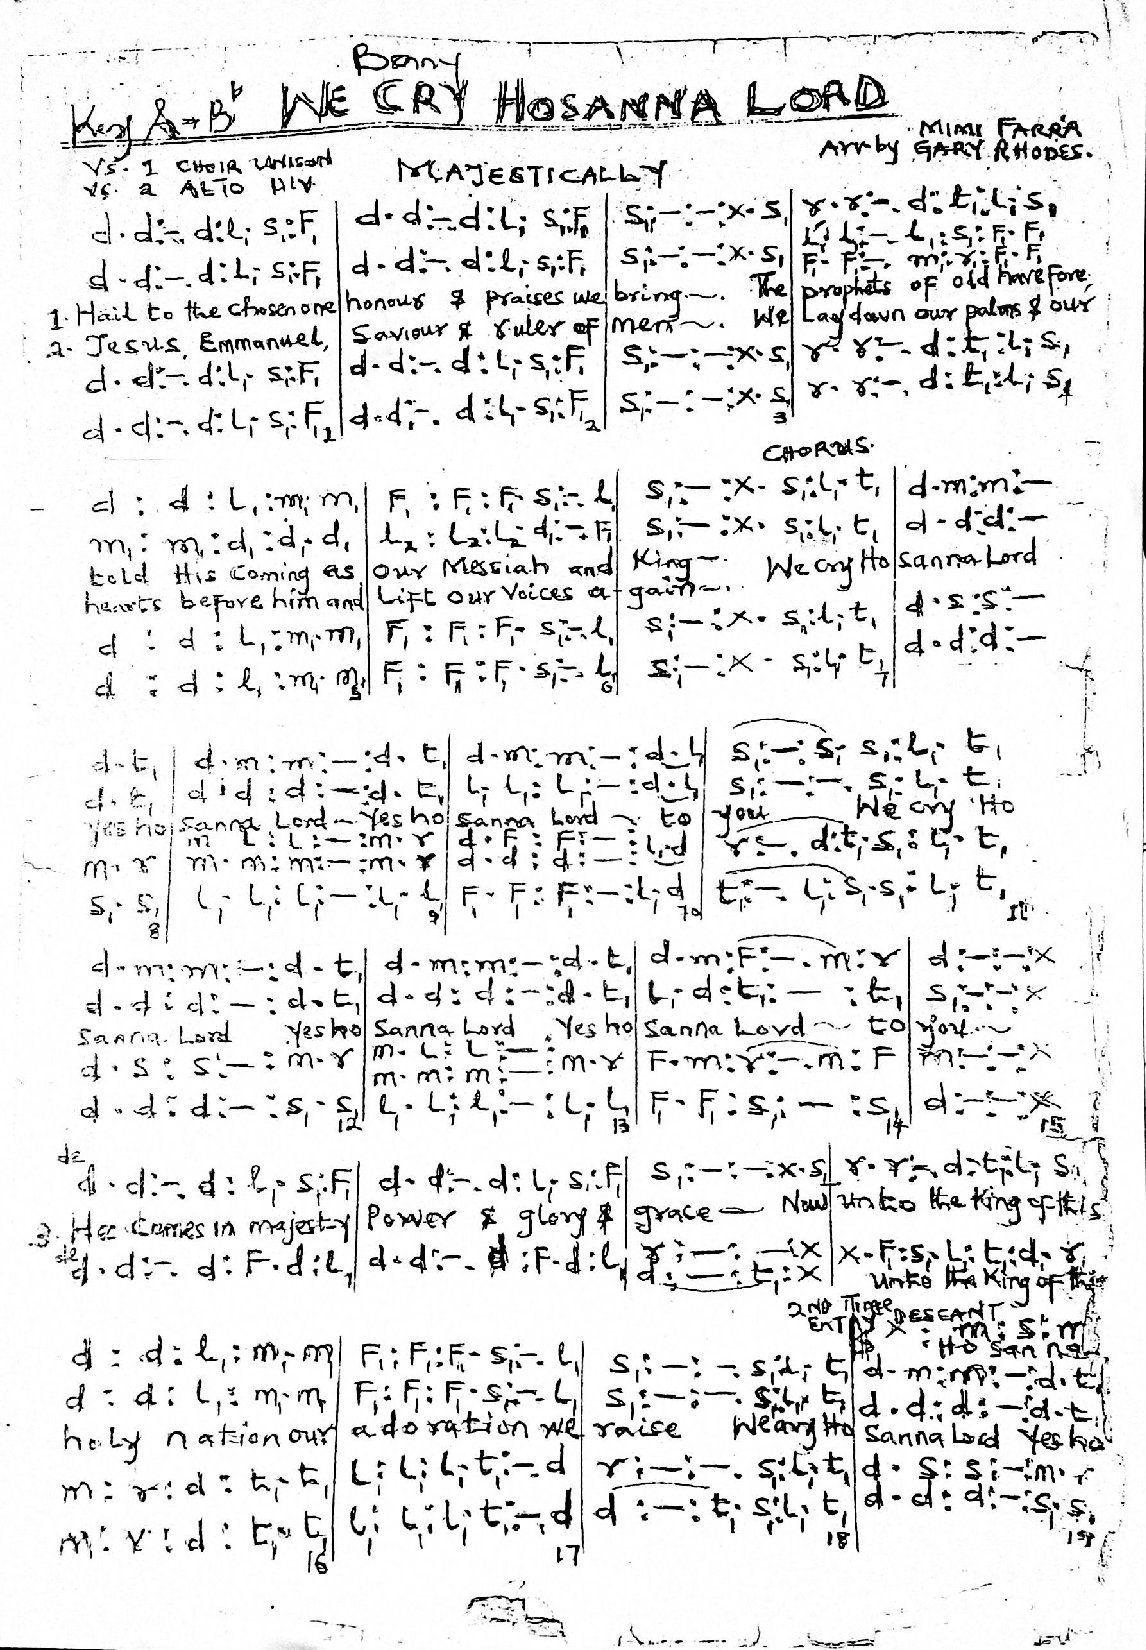 Benny
Key A → B♭ WE CRY HOSANNA LORD
MIMI FARRA
Arr by GARY RHODES.
VS. 1 CHOIR UNISON
VS. 2 ALTO DIV.
MAJESTICALLY
d . d :- . d : l, . s, : F, | d . d :- . d : l, . s, : F, | s, :- :- : x . s, | r . r :- . d : t, : l, . s,
d . d :- . d : l, . s, : F, | d . d :- . d : l, . s, : F, | s, :- :- : x . s,
1. Hail to the chosen one honour & praises we bring —. The prophets of old have fore
2. Jesus, Emmanuel, Saviour & ruler of men —. We Lay down our palms & our
d . d :- . d : l, . s, : F, | d . d :- . d : l, . s, : F, | s, :- :- : x . s, | r . r :- . d : t, : l, . s,
d . d :- . d : l, . s, : F, | d . d :- . d : l, . s, : F, | s, :- :- : x . s, | r . r :- . d : t, : l, . s,
CHORUS.
d : d : l, : m, . m, | F, : F, : F, . s, :- . l, | s, :- : x . s, : l, . t, | d . m : m :-
m, : m, : d, : d, . d, | l₂ : l₂ : l₂ . d, :- . F, | s, :- : x . s, : l, . t, | d . d : d :-
told His Coming as our Messiah and King —. We cry Ho sanna Lord
hearts before him and Lift our voices a-gain —.
d : d : l, : m, . m, | F, : F, : F, . s, :- . l, | s, :- : x . s, : l, . t, | d . s : s :-
d : d : l, : m, . m, | F, : F, : F, . s, :- . l, | s, :- : x . s, : l, . t, | d . d : d :-
d . t, | d . m : m :- : d . t, | d . m : m :- : d . l, | s, :- : s, . s, : l, . t,
d . t, | d . d : d :- : d . t, | l, . l, : l, :- : d . l, | s, :- :- . s, : l, . t,
Yes ho sanna Lord — Yes ho sanna Lord — to you We cry Ho
m . r | m . m : m :- : m . r | d . d : d :- : l, . d | r :- . d : t, . s, : l, . t,
s, . s, | l, . l, : l, :- : l, . l, | F, . F, : F, :- : l, . d | t, :- . l, : s, . s, : l, . t,
d . m : m :- : d . t, | d . m : m :- : d . t, | d . m : F :- . m : r | d :- :- : x
d . d : d :- : d . t, | d . d : d :- : d . t, | l, . d : t, :- : t, | s, :- :- : x
Sanna Lord Yes ho Sanna Lord Yes ho sanna Lord — to you —
d . s : s :- : m . r | m . l : l :- : m . r | F . m : r :- . m : F | m :- :- : x
m . m : m :-
d . d : d :- : s, . s, | l, . l, : l, :- : l, . l, | F, . F, : s, :- : s, | d :- :- : x
d . d :- . d : l, . s, : F, | d . d :- . d : l, . s, : F, | s, :- :- : x . s, | r . r :- . d : t, : l, . s,
3. He comes in majesty Power & glory & grace — Now unto the King of this
d . d :- . d : F . d : l, | d . d :- . d : F . d : l, | r :- :- : x | x . F : s, . l, : t, : d . r
d :- : t, : x unto the King of this
2ND Time DESCANT
ENTRY x : m : s : m
Ho San na
d : d : l, : m, . m, | F, : F, : F, . s, :- . l, | s, :- :- . s, : l, . t, | d . m : m :- : d . t,
d : d : l, : m, . m, | F, : F, : F, . s, :- . l, | s, :- :- . s, : l, . t, | d . d : d :- : d . t,
holy nation our adoration we raise We cry Ho Sanna Lord Yes ho
m : r : d : t, . t, | l, : l, : l, . t, :- . d | r :- :- . s, : l, . t, | d . s : s :- : m . r
m : r : d : t, . t, | l, : l, : l, . t, :- . d | d :- : t, . s, : l, . t, | d . d : d :- : s, . s,